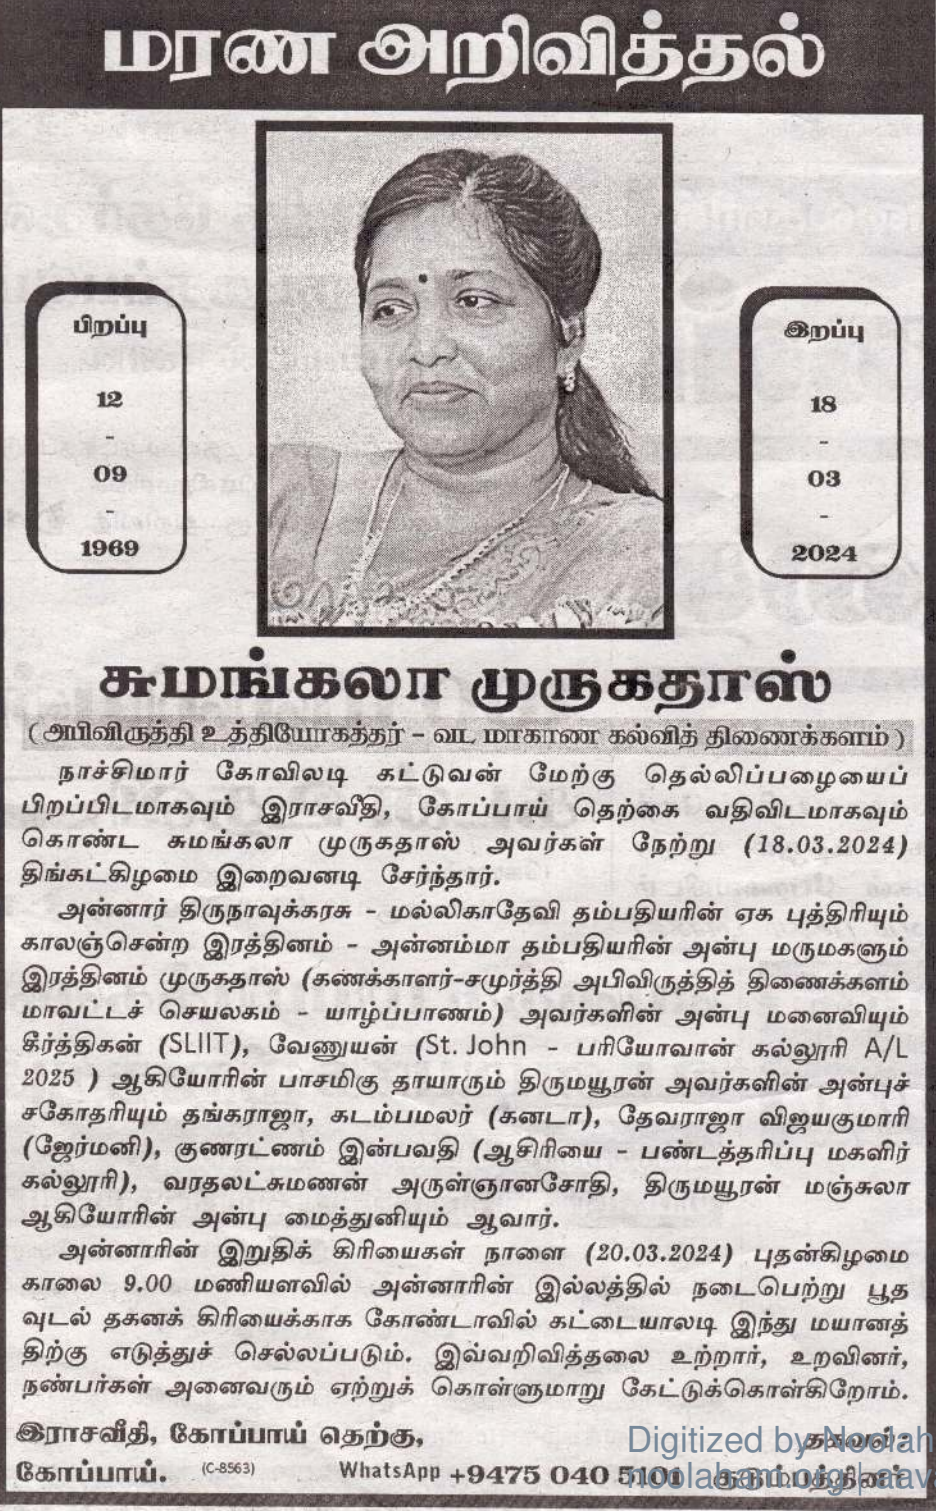 மரண அறிவித்தல்
பிறப்பு
12
-
09
-
1969
இறப்பு
18
-
03
-
2024
சுமங்கலா முருகதாஸ்
( அபிவிருத்தி உத்தியோகத்தர் – வட மாகாண கல்வித் திணைக்களம் )
நாச்சிமார் கோவிலடி கட்டுவன் மேற்கு தெல்லிப்பழையைப்
பிறப்பிடமாகவும் இராசவீதி, கோப்பாய் தெற்கை வதிவிடமாகவும்
கொண்ட சுமங்கலா முருகதாஸ் அவர்கள் நேற்று (18.03.2024)
திங்கட்கிழமை இறைவனடி சேர்ந்தார்.
அன்னார் திருநாவுக்கரசு – மல்லிகாதேவி தம்பதியரின் ஏக புத்திரியும்
காலஞ்சென்ற இரத்தினம் – அன்னம்மா தம்பதியரின் அன்பு மருமகளும்
இரத்தினம் முருகதாஸ் (கணக்காளர்-சமுர்த்தி அபிவிருத்தித் திணைக்களம்
மாவட்டச் செயலகம் – யாழ்ப்பாணம்) அவர்களின் அன்பு மனைவியும்
கீர்த்திகன் (SLIIT), வேணுயன் (St. John – பரியோவான் கல்லூரி A/L
2025 ) ஆகியோரின் பாசமிகு தாயாரும் திருமயூரன் அவர்களின் அன்புச்
சகோதரியும் தங்கராஜா, கடம்பமலர் (கனடா), தேவராஜா விஜயகுமாரி
(ஜேர்மனி), குணரட்ணம் இன்பவதி (ஆசிரியை – பண்டத்தரிப்பு மகளிர்
கல்லூரி), வரதலட்சுமணன் அருள்ஞானசோதி, திருமயூரன் மஞ்சுலா
ஆகியோரின் அன்பு மைத்துனியும் ஆவார்.
அன்னாரின் இறுதிக் கிரியைகள் நாளை (20.03.2024) புதன்கிழமை
காலை 9.00 மணியளவில் அன்னாரின் இல்லத்தில் நடைபெற்று பூத
வுடல் தகனக் கிரியைக்காக கோண்டாவில் கட்டையாலடி இந்து மயானத்
திற்கு எடுத்துச் செல்லப்படும். இவ்வறிவித்தலை உற்றார், உறவினர்,
நண்பர்கள் அனைவரும் ஏற்றுக் கொள்ளுமாறு கேட்டுக்கொள்கிறோம்.
இராசவீதி, கோப்பாய் தெற்கு,
கோப்பாய்.
(C-8563)
WhatsApp +9475 040 5101
தகவல்:-
குடும்பத்தினர்
Digitized by Noolah
noolaham.org | aav